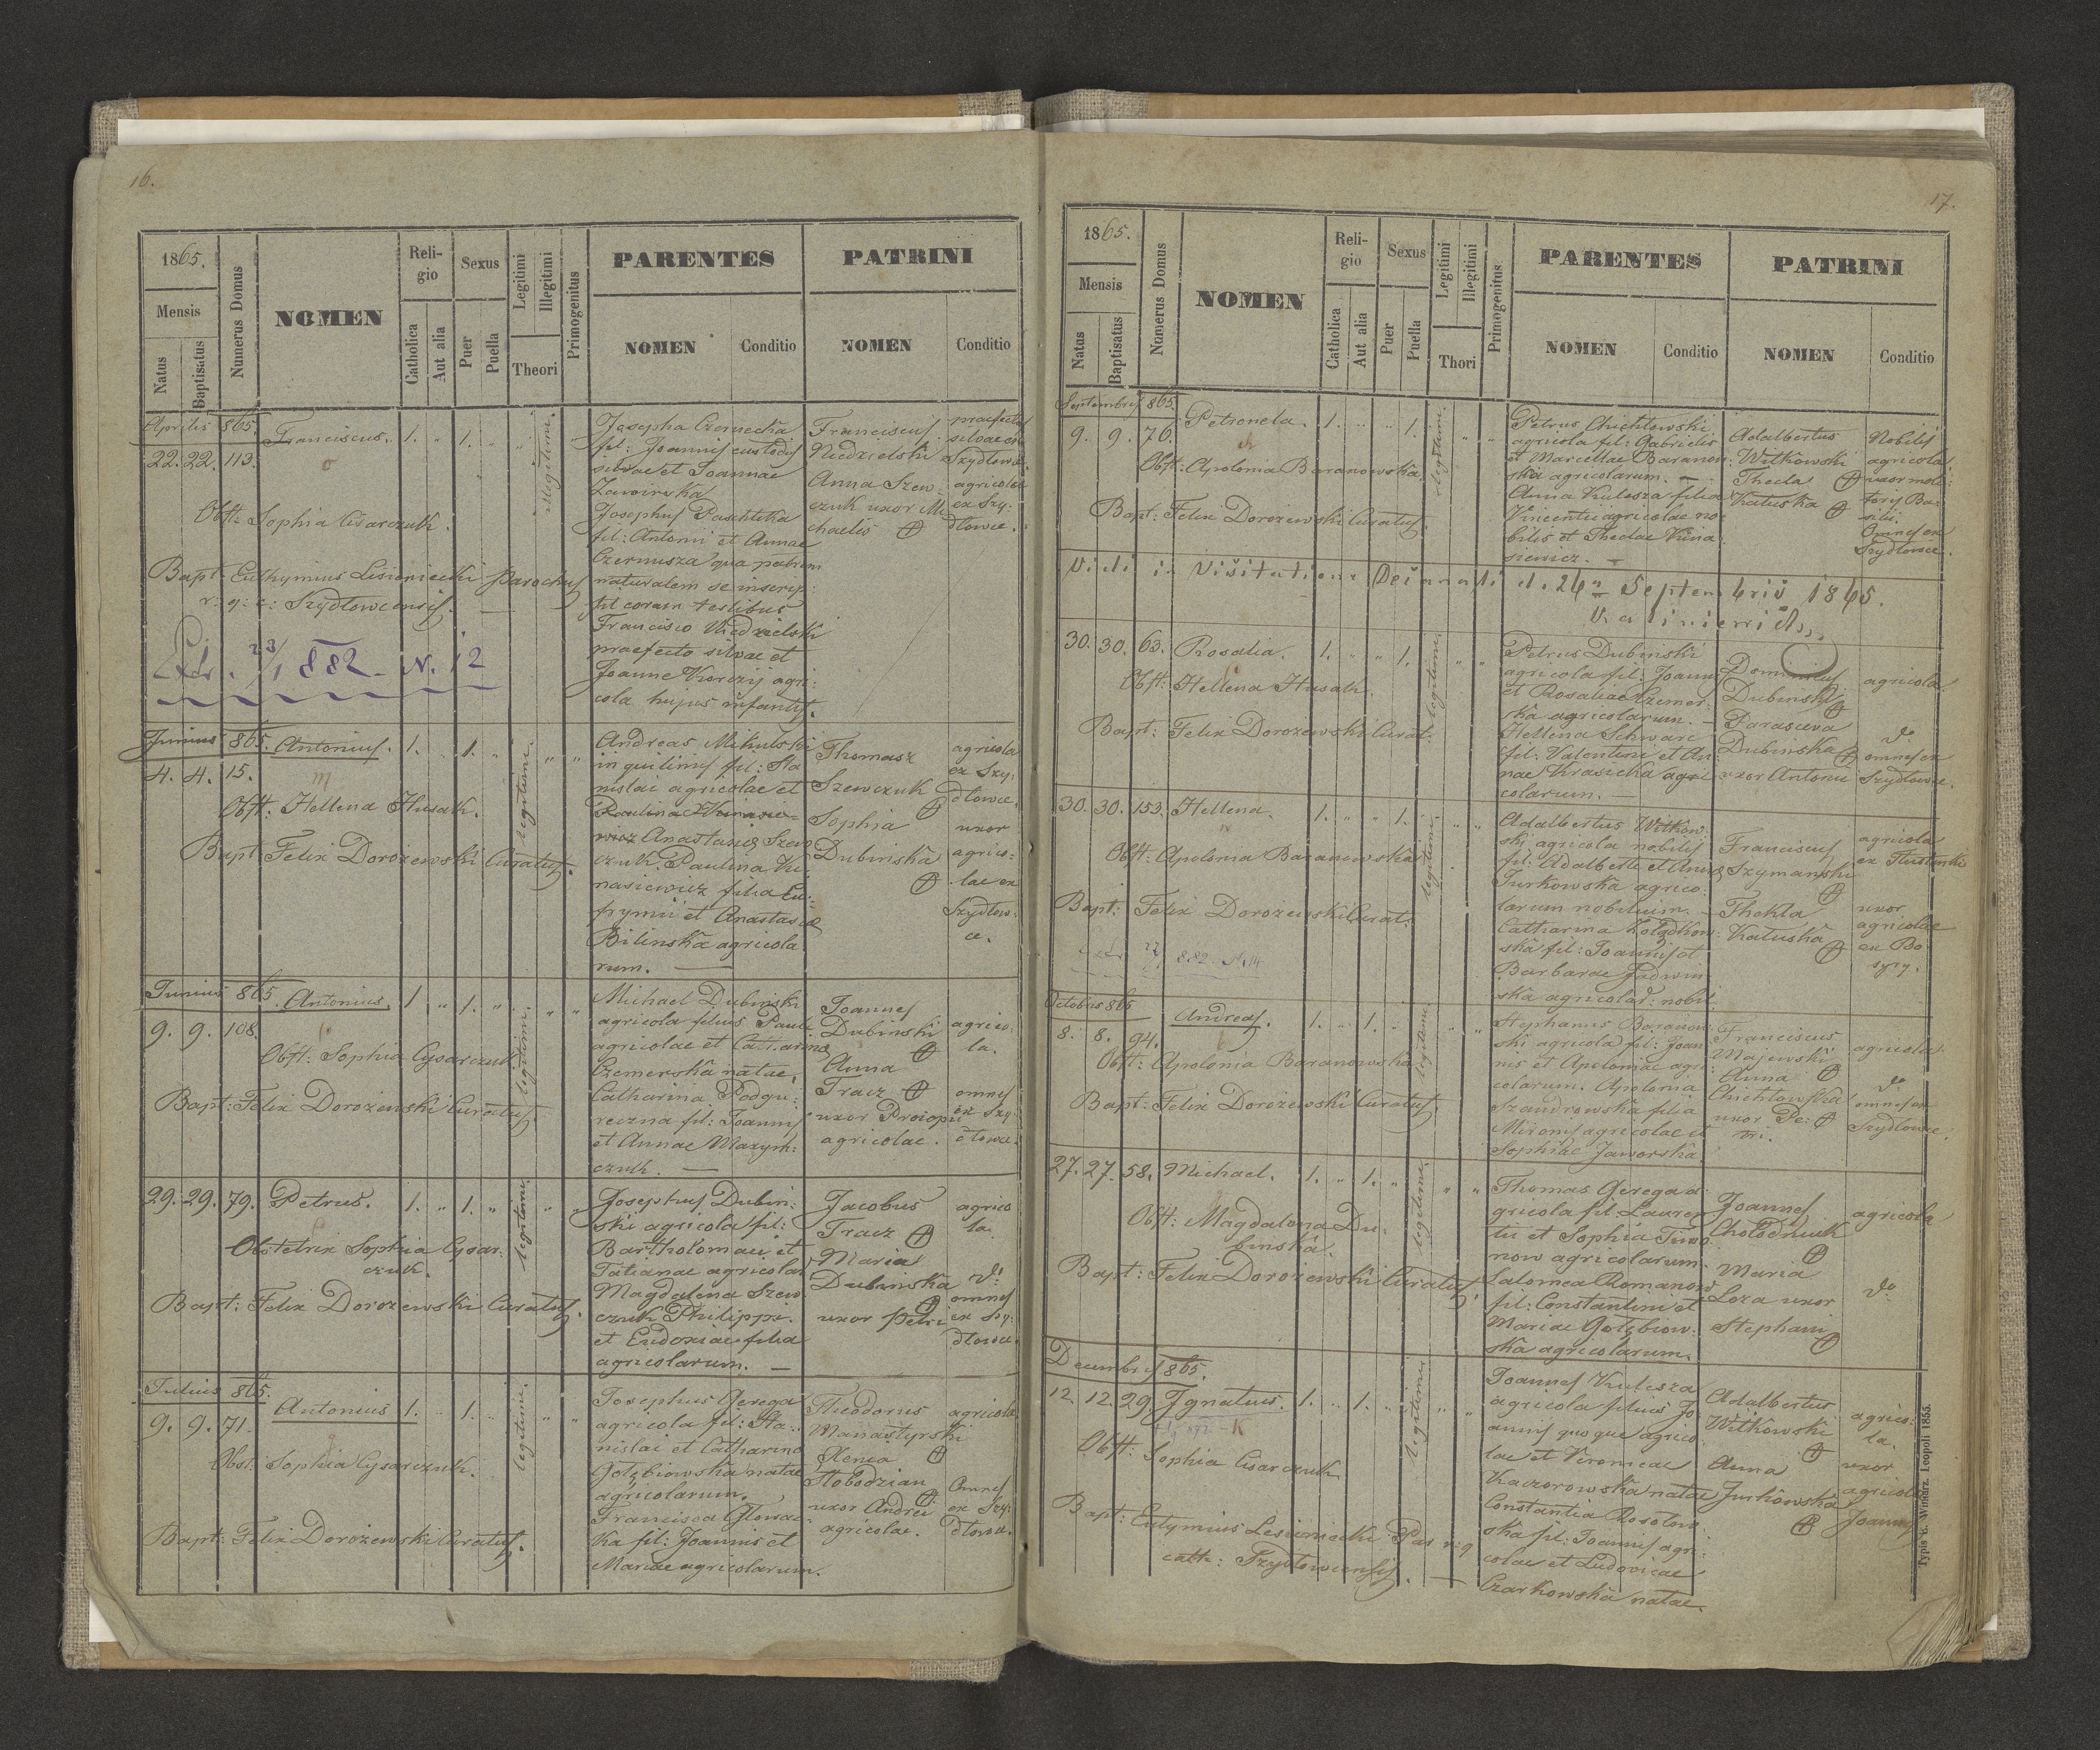 16.
1865.
Mensis
Natus
Baptisatus
Numerus Domus
NOMEN
Reli-
gio
Catholica
Aut alia
Sexus
Puer
Puella
Legitimi
Illegitimi
Theori
Primogenitus
PARENTES
NOMEN
Conditio
PATRINI
NOMEN
Conditio
Aprilis 865.
22. 22. 113.
Franciscus. 1. " 1. "
legitimi.
Obst: Sophia Cisarczuk.
Bapt: Euthymius Lisieniecki Parochus
r: g: c: Szydłowcensis.
Extr. 23/1 882 N. 12
Josepha Czernecka
fil: Joannis custodis
silvae et Joannae
Zawirska
Josephus Paschteka
fil: Antonii et Annae
Czernusza qua patrem
naturalem se inscrip:
sit coram testibus
Francisco Niedzielski
praefecto silvae et
Joanne Korczij agri:
cola hujus infantis.
Franciscus
Niedzielski
Anna Szew:
czuk uxor Mi:
chaelis
praefectus
silvae ex
Szydłowce
agricolae
ex Szy:
dłowce.
Junius 865.
4. 4. 15.
Antonius. 1. 1. "
legitimi.
Obst: Hellena Husak.
Bapt: Felix Dorożewski Curatus.
Andreas Mikulski
inquilinus fil: Sta
nislai agricolae et
Anastasiae Szew
czuk. Paulina Ku:
nasiewicz filia Eu:
frymii et Anastasiae
Bilinska agricola:
rum.
Thomasz
Szewczuk
Sophia
Dubinska
agricola
ex Szy:
dłowce.
uxor
agrico:
lae ex
Szydłow:
ce.
Junius 865.
9. 9. 108.
Antonius. 1 " 1. "
legitimi.
Obst: Sophia Cysarczuk
Bapt: Felix Dorożewski Curatus.
Michael Dubinski
agricola filius Pauli
agricolae et Catharinae
Czemerska natae,
Catharina Podgu:
reczna fil: Joannis
et Annae Mazym:
czuk.
Joannes
Dubinski
Anna
Tracz
uxor Procopii
agricolae.
agrico:
la.
omnes
ex Szy:
dłowce.
29. 29. 79. Petrus. 1. " 1. "
legitimi.
Obstetrix Sophia Cysar:
czuk.
Bapt: Felix Dorożewski Curatus.
Josephus Dubin:
ski agricola fil:
Bartholomaei et
Tatianae agricolar
Magdalena Szew
czuk Philippi
et Eudoxiae filia
agricolarum.
Jacobus
Tracz
Maria
Dubinska
uxor Petri
agrico
la.
do
omnes
ex Szy:
dłowce.
Julius 865.
9. 9. 71.
Antonius 1. " 1. "
legitimi.
Obst: Sophia Cysarczuk.
Bapt: Felix Dorożewski Curatus.
Josephus Gerega
agricola fil: Sta:
nislai et Catharinae
Gołębiowska natae
agricolarum.
Francisca Głowac
ka fil: Joannis et
Mariae agricolarum.
Theodorus
Manastyrski
Xenia
Słobodzian
uxor Andrei
agricolae.
agricola
Omnes
ex Szy:
dłowce.
17.
1865.
Mensis
Natus
Baptisatus
Numerus Domus
NOMEN
Reli-
gio
Catholica
Aut alia
Sexus
Puer
Puella
Legitimi
Illegitimi
Thori
Primogenitus
PARENTES
NOMEN
Conditio
PATRINI
NOMEN
Conditio
Septembris 865.
9. 9. 76. Petronela. 1. " " 1.
legitimi.
Obst: Apolonia Baranowska.
Bapt: Felix Dorożewski Curatus.
Petrus Chichłowski
agricola fil: Gabrielis
et Marcellae Baranow:
ska agricolarum.
Anna Kulesza filia
Vincentii agricolae no:
bilis et Theclae Kuna
siewicz.
Adalbertus
Witkowski
Thecla
Kałuska
Nobilis
agricola.
uxor moli:
toris Ba:
silii.
Omnes ex
Szydłowce.
Vidi in Visitatione Decanali d. 26a Septembris 1865.
30. 30. 63. Rosalia. 1. " " 1.
legitimi.
Obst: Hellena Husak.
Bapt: Felix Dorożewski Curat.
Petrus Dubinski
agricola fil: Joannis
et Rosaliae Czemer
ska agricolarum.
Hellena Schwarc
fil: Valentini et An:
nae Krasicka agri
colarum.
Dominicus
Dubinski
Parasceva
Dubinska
uxor Antonii
agricola.
do
omnes ex
Szydłowce.
30. 30. 153. Hellena. 1. " " 1.
legitimi.
Obst: Apolonia Baranowska
Bapt: Felix Dorożewski Curat.
27/1 882 N. 14
Adalbertus Witkow:
ski agricola nobilis
fil: Adalberti et Annae
Turkowska agrico:
larum nobilium.
Catharina
ska fil: Joannis et
Barbarae
ska agricolar: nobil
Franciscus
Szymanski
Thekla
Kałuska
agricola
uxor
agricolae
ex Bo
syry.
Octobris 865
8. 8. 94.
Andreas. 1. " 1.
legitimi.
Obst: Apolonia Baranowska
Bapt: Felix Dorożewski Curatus.
Stephanus Baranow
ski agricola fil: Joan
nis et Apoloniae agri:
colarum. Apolonia
Szandrowska filia
Mironis agricolae et
Sophiae Jaworska.
Franciscus
Majewski
Anna
Chichłowska
uxor Pe:
tri.
agricola.
do
omnes ex
Szydłowce.
27. 27. 58. Michael. 1. " 1. "
legitimi.
Obst: Magdalena Du:
binska.
Bapt: Felix Dorożewski Curatus.
Thomas Gerega a
gricola fil: Lauren
tii et Sophia
now agricolarum.
Salomea Romanow
fil: Constantini et
Mariae Gołębiow:
ska agricolarum.
Joannes
Chołodniuk
Maria
Łoza uxor
Stephani
agricola
do
Decembris 865.
12. 12. 29. Ignatius. 1. " 1.
legitimi.
Obst: Sophia Cisarczuk
Bapt: Eutymius Lesieniecki Par r: g
cath: Szydłowcensis.
Joannes Kulesza
agricola filius Jo
annis quoque agrico
lae et Veronicae
Kaczorowska natae
Constantia Rosołow
ska fil: Joannis agri:
colae et Ludovicae
Czarkowska natae.
Adalbertus
Witkowski
Anna
Jurkowska
agrico:
la.
uxor
agricolae
Joannis
Typis k. Winiarz. Leopoli 1855.